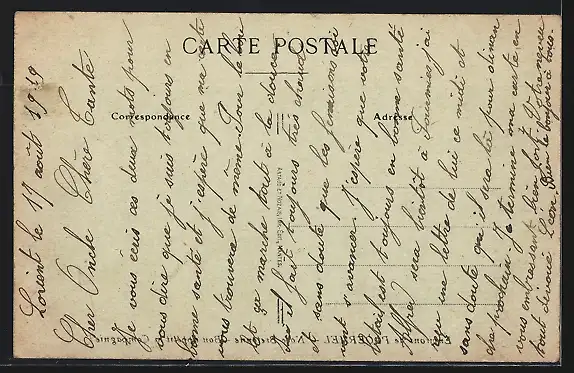 CARTE POSTALE
Correspondance
Adresse
Lorient le 17 août 1919
Cher Oncle Chère Tante
Je vous écris ces deux mots pour
vous dire que je suis toujours en
bonne santé et j'espère que ma carte
vous trouvera de même. Pour le moi
et ça marche tout à la douce
il fait toujours très chaud
et sans doute que les fenaisons
vont s'avancer. J'espère que votre
bétail est toujours en bonne santé
Alfred sera bientôt à Fournier j'ai
reçu une lettre de lui ce midi et
sans doute qu'il sera là pour diman
che prochain. Je termine ma carte en
vous embrassant bien fort. Votre neveu
tout dévoué Léon. Bien le bonjour à tous.